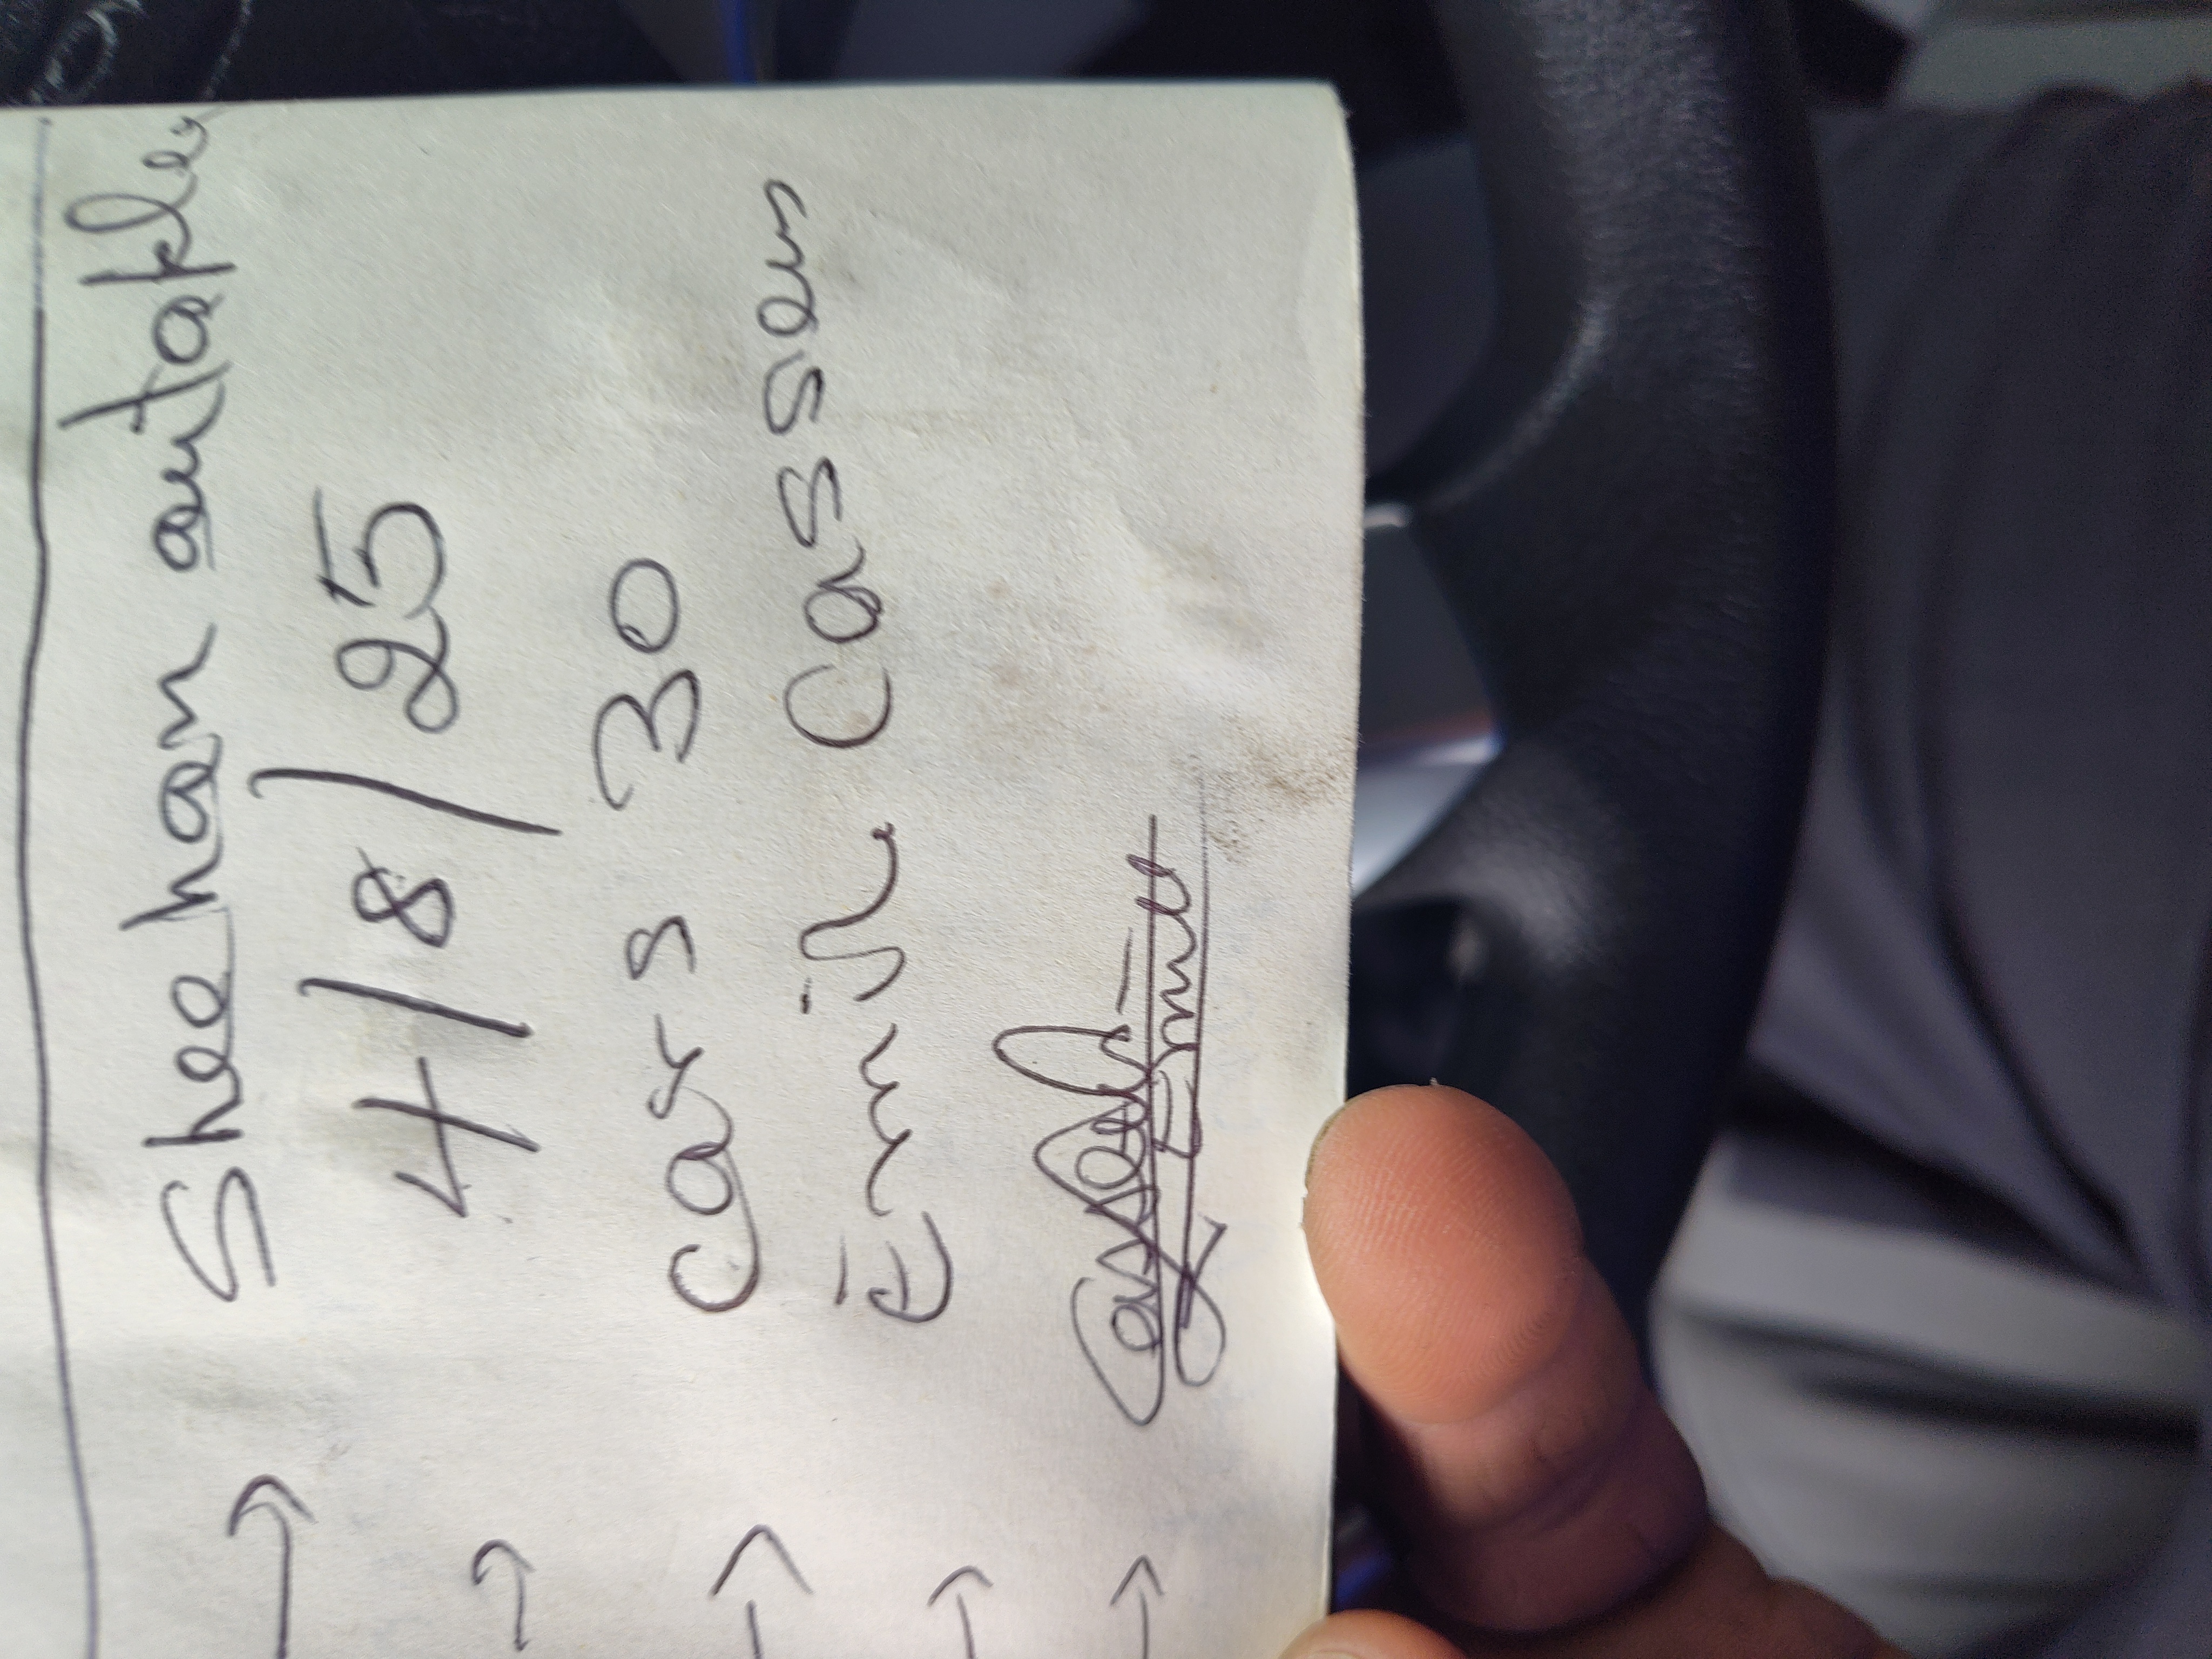 → Sheehan autoplex
→ 4/8/25
→ Cars 30
→ Emile Cassen
→